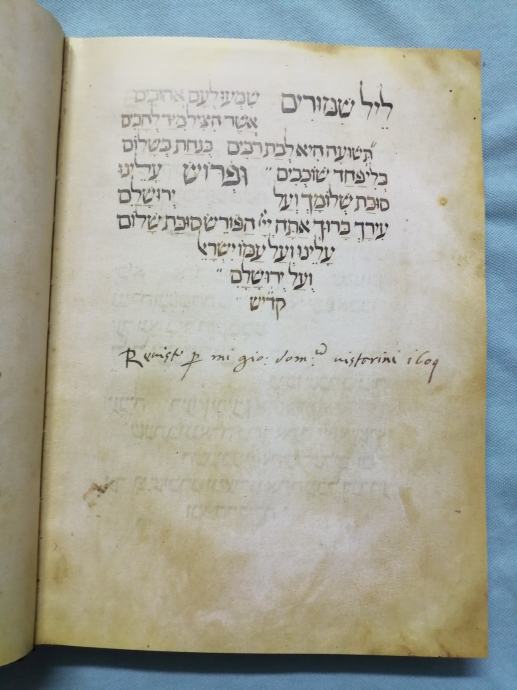 לֵיל שִׁמּוּרִים שִׂמְּעוּ לְעַם אֲהוּבִים
אֲשֶׁר הִצִּיל מִיַּד לְהָבִים
תְּשׁוּעָה הִיא לְבַת רַבִּים בְּנַחַת בְּשָׁלוֹם
בְּלִי פַחַד שׁוֹכְבִים וּפְרוֹשׂ עָלֵינוּ
סוּכַּת שְׁלוֹמֶךָ וְעַל יְרוּשָׁלַםִ
עִירֶךָ בָּרוּךְ אַתָּה יְיָ הַפּוֹרֵשׂ סוּכַּת שָׁלוֹם
עָלֵינוּ וְעַל עַמּוֹ יִשְׂרָאֵל
וְעַל יְרוּשָׁלַםִ
קדיש
Revisto p mi gio: dom.co vistorini 1609